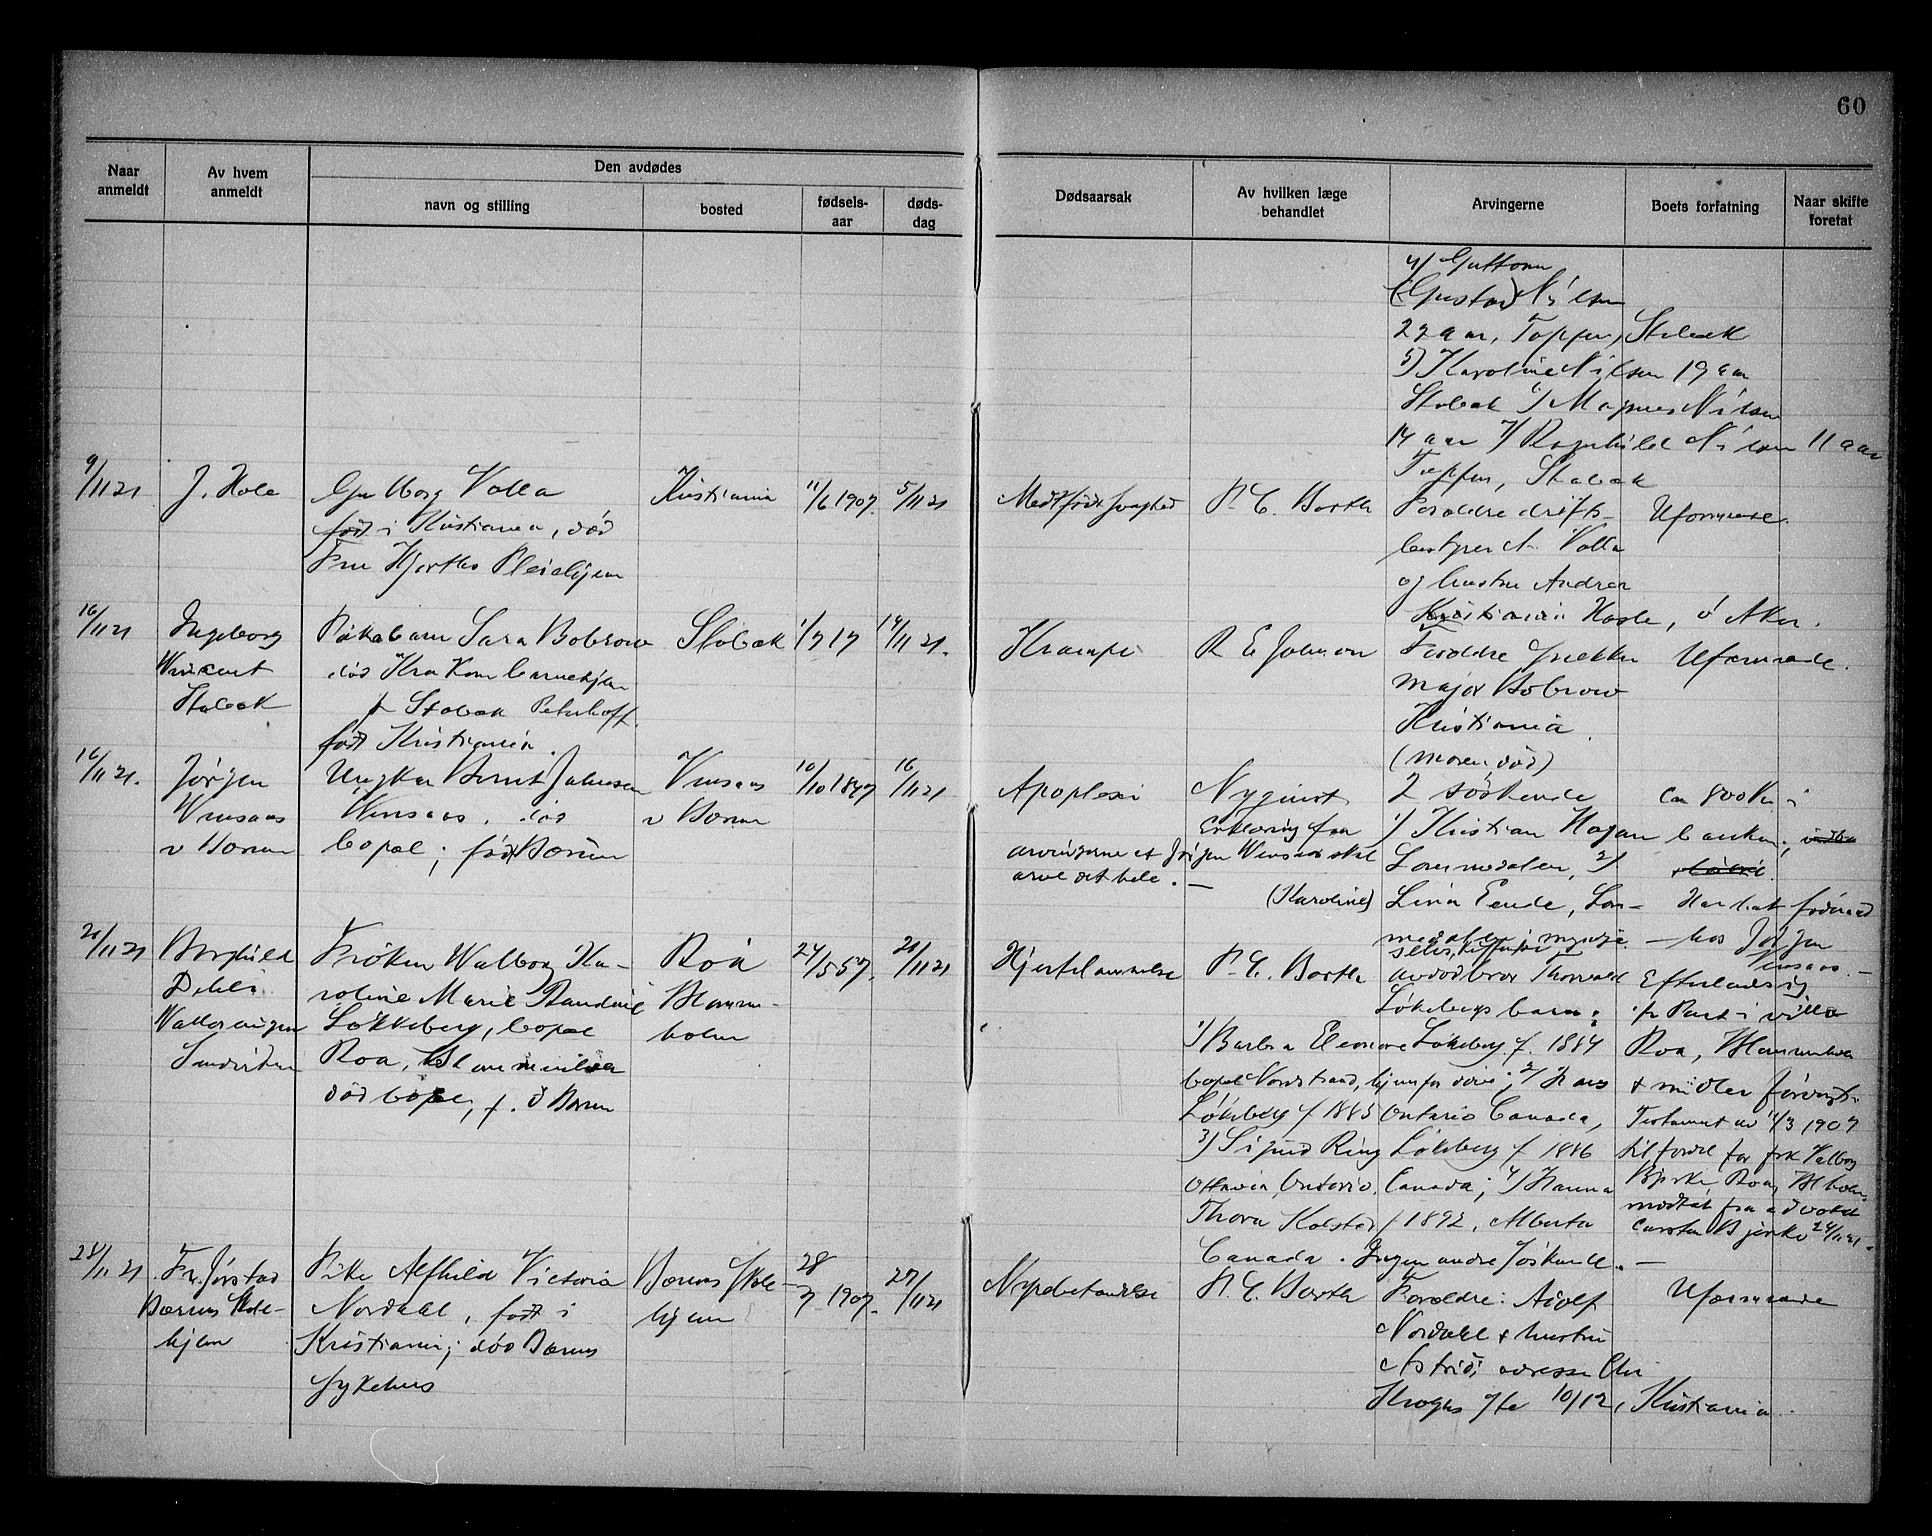 60
Naar anmeldt
Av hvem anmeldt
Den avdødes
navn og stilling
bosted
fødsels-aar
døds-dag
Dødsaarsak
Av hvilken læge behandlet
Arvingerne
Boets forfatning
Naar skifte foretat
4) Guttorm
(Gustav) Nilsen
22 aar, Toppen, Stabæk
5) Karoline Nilsen 19 aar
Stabæk 6) Magnus Nilsen
14 aar 7) Ragnhild Nilsen 11 aar
Toppen, Stabæk
9/11 21
J. Hole
Gu Borg Volla
født i Kristiania, død
Fru Hjorths Pleiehjem
Kristiania
11/6 1907.
5/11 21
Medfødt svaghed
P. C. Barth
Forældre drifts-
bestyrer A. Volla
og hustru Andrea
Kristianin Hasle, Ø Aker.
Uformuende.
16/11 21
Ingeborg
Wincent
Stabæk
Pikebarn Sara Bobrow
død Kra Kom barnehjem
p Stabæk Peterhoff.
født Kristiania.
Stabæk
1/7 17
14/11 21.
Krampe
R E Johnson
Forældre
major Bobrow
Kristiania.
(moren død)
Uformuende.
16/11 21.
Jørgen
Vensaas
v Bærum
Ungkar Bernt Johnsen
Vensaas, død
bopæl; født Bærum
Vensaas
v Bærum
10/10 1847
16/11 21
Apoplexi
Nyquist
Erklæring fra
arvingerne at Jørgen Vensaas skal
arve det hele. —
2 søskende
1) Kristian Hagan
Lommedalen, 2)
(Karoline) Lina Eende, Lom-
medalen; myndige
Ca 800 Kr i
banken;
Har hat føderaad
— hos Jørgen
Vensaas. —
21/11 21
Borghild
Dehli
Valleraugen
Sandviken
Frøken Walborg Ka-
roline Marie Randine
Løkkeberg, bopæl
Roa, Blommenholm
død bopæl, f. Ø Bærum
Roa
Blommen-
holm
24/5 57.
21/11 21
Hjertelammelse
P. C. Barth
avdød bror Thorvald
Løkebergs barn:
1) Barbra Eleonore Løkeberg f. 1884
bopæl Nordstrand, hjemfor døve; 2) Hans
Løkeberg f 1885 Ontario Canada,
3) Sigurd Ring Løkeberg f 1886
Ottawa, Ontario, Canada; 4) Hanna
Thora Kolstad f 1892, Alberta
Canada. Ingen andre søskende. —
Efterlader sig
1/2 Part i villa
Roa, Blommenholm
+ midler forøvrigt.
Testament av 1/3 1907
til fordel for frk Valborg
Bjerke Roa, Blholm
mottat fra advokat
Carsten Bjerke 24/11 21.
28/11 21
Fr. Jørstad
Bærums Skole-
hjem
Pike Alfhild Victoria
Nordahl, født i
Kristiania; død Bærums
Sykehus
Bærums Skole-
hjem
28/7 1907.
27/11 21
Nyrebetændelse
P. C. Barth
Forældre: Adolf
Nordahl + hustru
Astrid; adresse Chr
Kroghs gte 10/12, Kristiania.
Uformuende